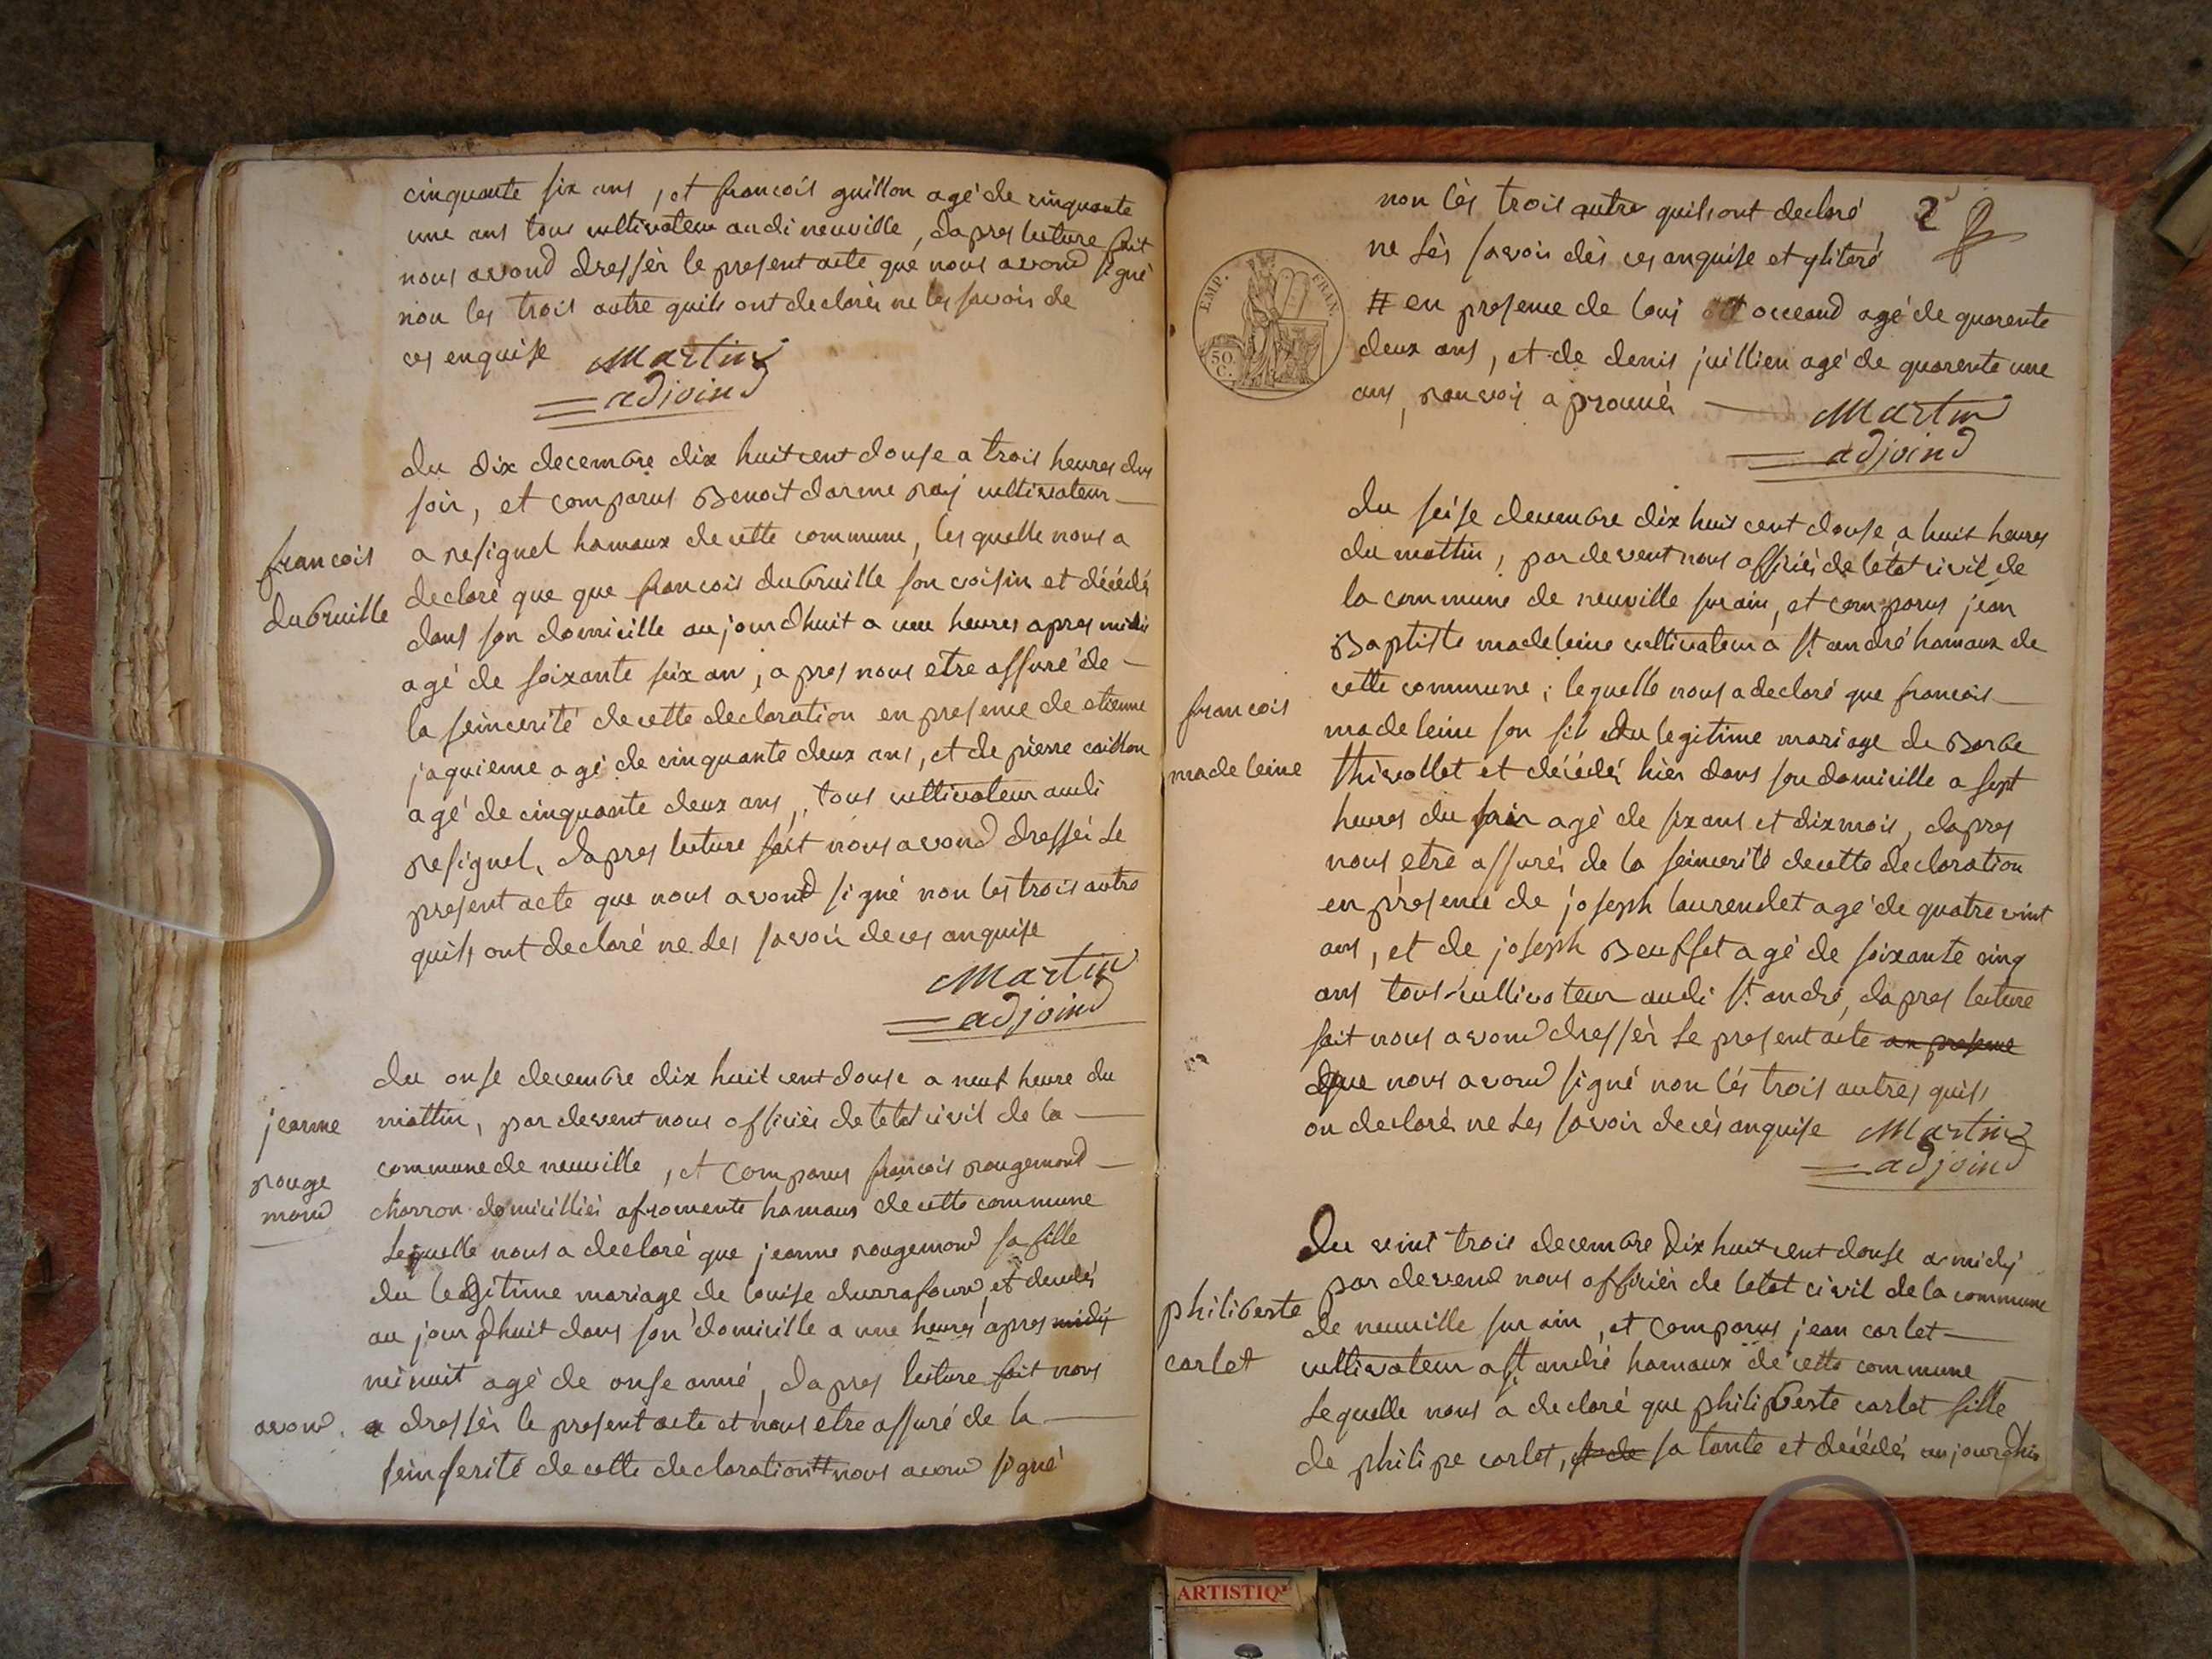 cinquante six ans, et francois guillon agé de cinquante
une ans tous cultivateur audi neuville, dapres lecture fait
nous avond dressér le present acte que nous avond signé
non les trois autre quils ont declarés ne les savoir de
ces enquise Martin
adjoind
du dix decembre dix huit cent douse a trois heures du
soir, et comparus Benoit darme ray cultivateur
francois
dubruille
a resignel hamaux de cette commune, les quelle nous a
declaré que que francois dubruille son voisin et décédé
dans son domicille aujourdhuit a une heures apres midi
agé de soixante seix an, apres nous etre assuré de
la seincerité de cette declaration en presence de etienne
jaquieme agé de cinquante deux ans, et de pierre caillon
agé de cinquante deux ans, tous cultivateur audi
resignel, dapres lecture fait nous avond dressér le
present acte que nous avond signé non les trois autre
quils ont declaré ne les savoir de ces anquise
Martin
adjoind
du onse decembre dix huit cent douse a neuf heure du
jeanne
rouge
mond
mattin, par devent nous officiés de letat civil de la
commune de neuville, et comparus francois rougemond
charron domicilliéi a fromente hamaus de cette commune
Lequelle nous a declaré que jeanne rougemond sa fille
du legitime mariage de louise durrafourd, et decedés
au jourdhuit dans son domicille a une heures apres midy
minuit agé de onse anné, dapres lecture fait nous
avond. a dressér le present acte et nous etre assuré de la
seinserité de cette declaration # nous avond signé
non lés trois autre quils ont declaré 2
ne lés savoir dés ces anquise et
EMP. FRAN.
50 C.
# en presence de loui occeand agé de quarente
deux ans, et de denis juillien agé de quarente une
ans, ranvois aprouués Martin
adjoind
du seise decembre dix huit cent douse a huit heures
du mattin, par devent nous officiés de letat civil de
la commune de neuville sur ain, et comparus jean
Baptiste madeleine cultivateur a St. andré hamaux de
francois
madeleine
cette commune; lequelle nous a declaré que francois
madeleine son fil du legitime mariage de Barbe
thivollet et décédés hier dans son domicille a sept
heures du soir agé de six ans et dix mois, dapres
nous etre assurés de la seincerité de cette declaration
en présence de joseph laurendet agé de quatre vint
ans, et de joseph Beuffet agé de soixante cinq
ans tous cultivateur audi St. andré, dapres lecture
fait nous avond dressér le present acte en presence
que nous avond signé non lés trois autres quils
on declarés ne les savoir de cés anquise Martin
adjoind
Du veint trois decembre dix huit cent douse a midy
philiberte
carlet
par devend nous officiér de letat civil de la commune
de neuville sur ain, et comparus jean carlet
cultivateur a St. andré hamaux de cette commune
Lequelle nous a declaré que philiberte carlet fille
de philipe carlet, sa tante et décédés aujourdhui